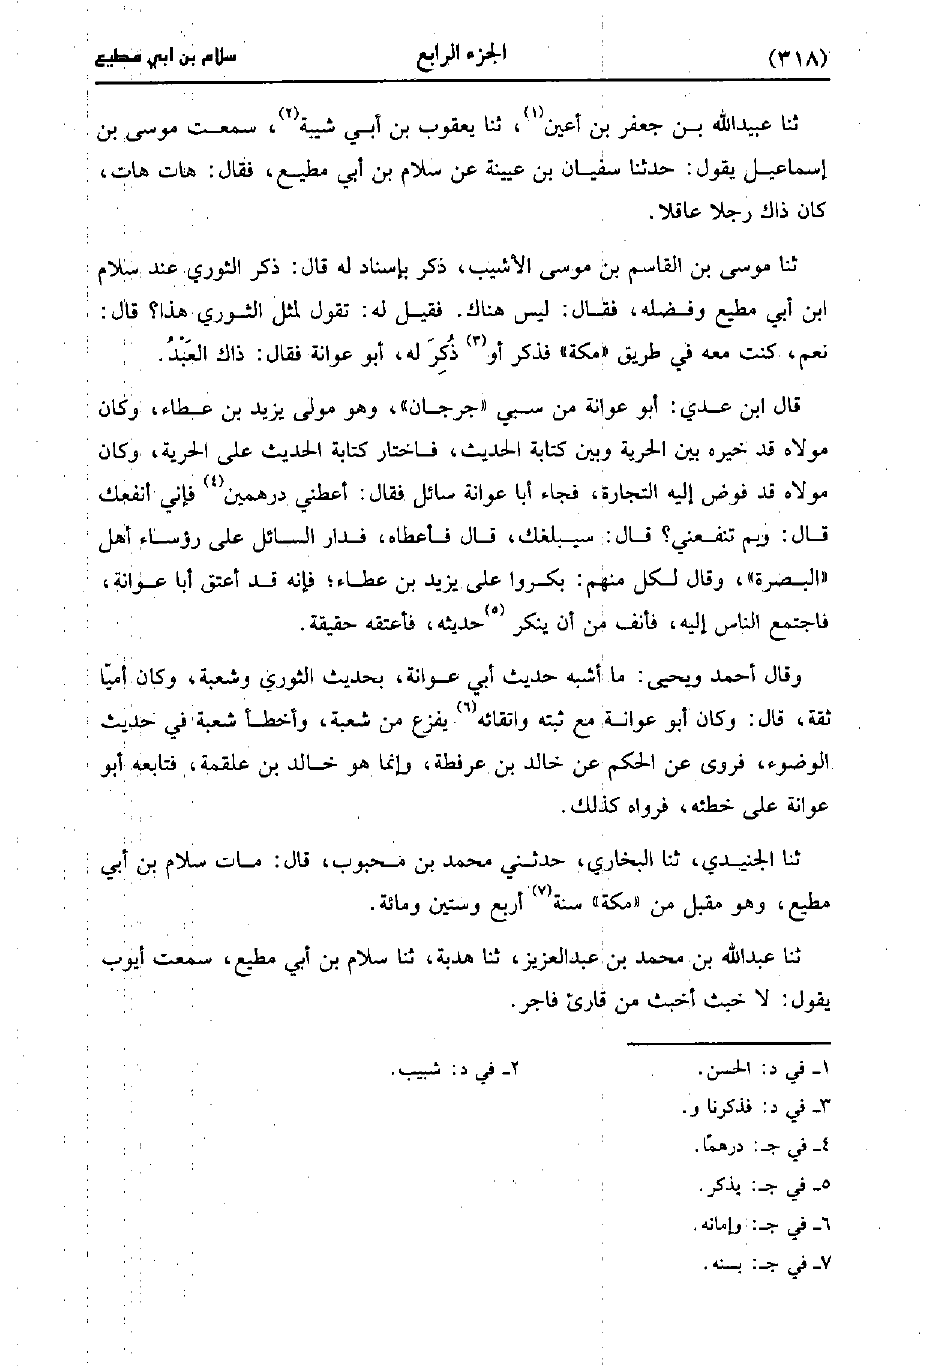 (٣١٨) الجزء الرابع سلام بن أبي مطيع
ثنا عبيدالله بن جعفر بن أعين(١)، ثنا يعقوب بن أبي شيبة(٢)، سمعت موسى بن
إسماعيل يقول: حدثنا سفيان بن عيينة عن سلام بن أبي مطيع، فقال: هات هات،
كان ذاك رجلا عاقلا.
ثنا موسى بن القاسم بن موسى الأشيب، ذكر بإسناد له قال: ذكر الثوري عند سلام
ابن أبي مطيع وفضله، فقال: ليس هناك. فقيل له: تقول لمثل الثوري هذا؟ قال:
نعم، كنت معه في طريق «مكة» فذكر أو(٣) ذُكِرَ له، أبو عوانة فقال: ذاك العَبْدُ.
قال ابن عدي: أبو عوانة من سبي «جرجان»، وهو مولى يزيد بن عطاء، وكان
مولاه قد خيره بين الحرية وبين كتابة الحديث، فاختار كتابة الحديث على الحرية، وكان
مولاه قد فوض إليه التجارة، فجاء أبا عوانة سائل فقال: أعطني درهمين(٤) فإني أنفعك
قال: وبم تنفعني؟ قال: سيبلغك، قال فأعطاه، فدار السائل على رؤساء أهل
«البصرة»، وقال لكل منهم: بكروا على يزيد بن عطاء؛ فإنه قد أعتق أبا عوانة،
فاجتمع الناس إليه، فأنف من أن ينكر (٥)حديثه، فأعتقه حقيقة.
وقال أحمد ويحيى: ما أشبه حديث أبي عوانة، بحديث الثوري وشعبة، وكان أميًا
ثقة، قال: وكان أبو عوانة مع ثبته واتقائه(٦) يفزع من شعبة، وأخطأ شعبة في حديث
الوضوء، فروى عن الحكم عن خالد بن عرفطة، وإنما هو خالد بن علقمة، فتابعه أبو
عوانة على خطئه، فرواه كذلك.
ثنا الجنيدي، ثنا البخاري، حدثني محمد بن محبوب، قال: مات سلام بن أبي
مطيع، وهو مقبل من «مكة» سنة(٧) أربع وستين ومائة.
ثنا عبدالله بن محمد بن عبدالعزيز، ثنا هدبة، ثنا سلام بن أبي مطيع، سمعت أيوب
يقول: لا خبث أخبث من قارئ فاجر.
١ـ في د: الحسن. ٢ـ في د: شبيب.
٣ـ في د: فذكرنا و.
٤ـ في جـ: درهمًا.
٥ـ في جـ: يذكر.
٦ـ في جـ: وإمانه.
٧ـ في جـ: بسنه.